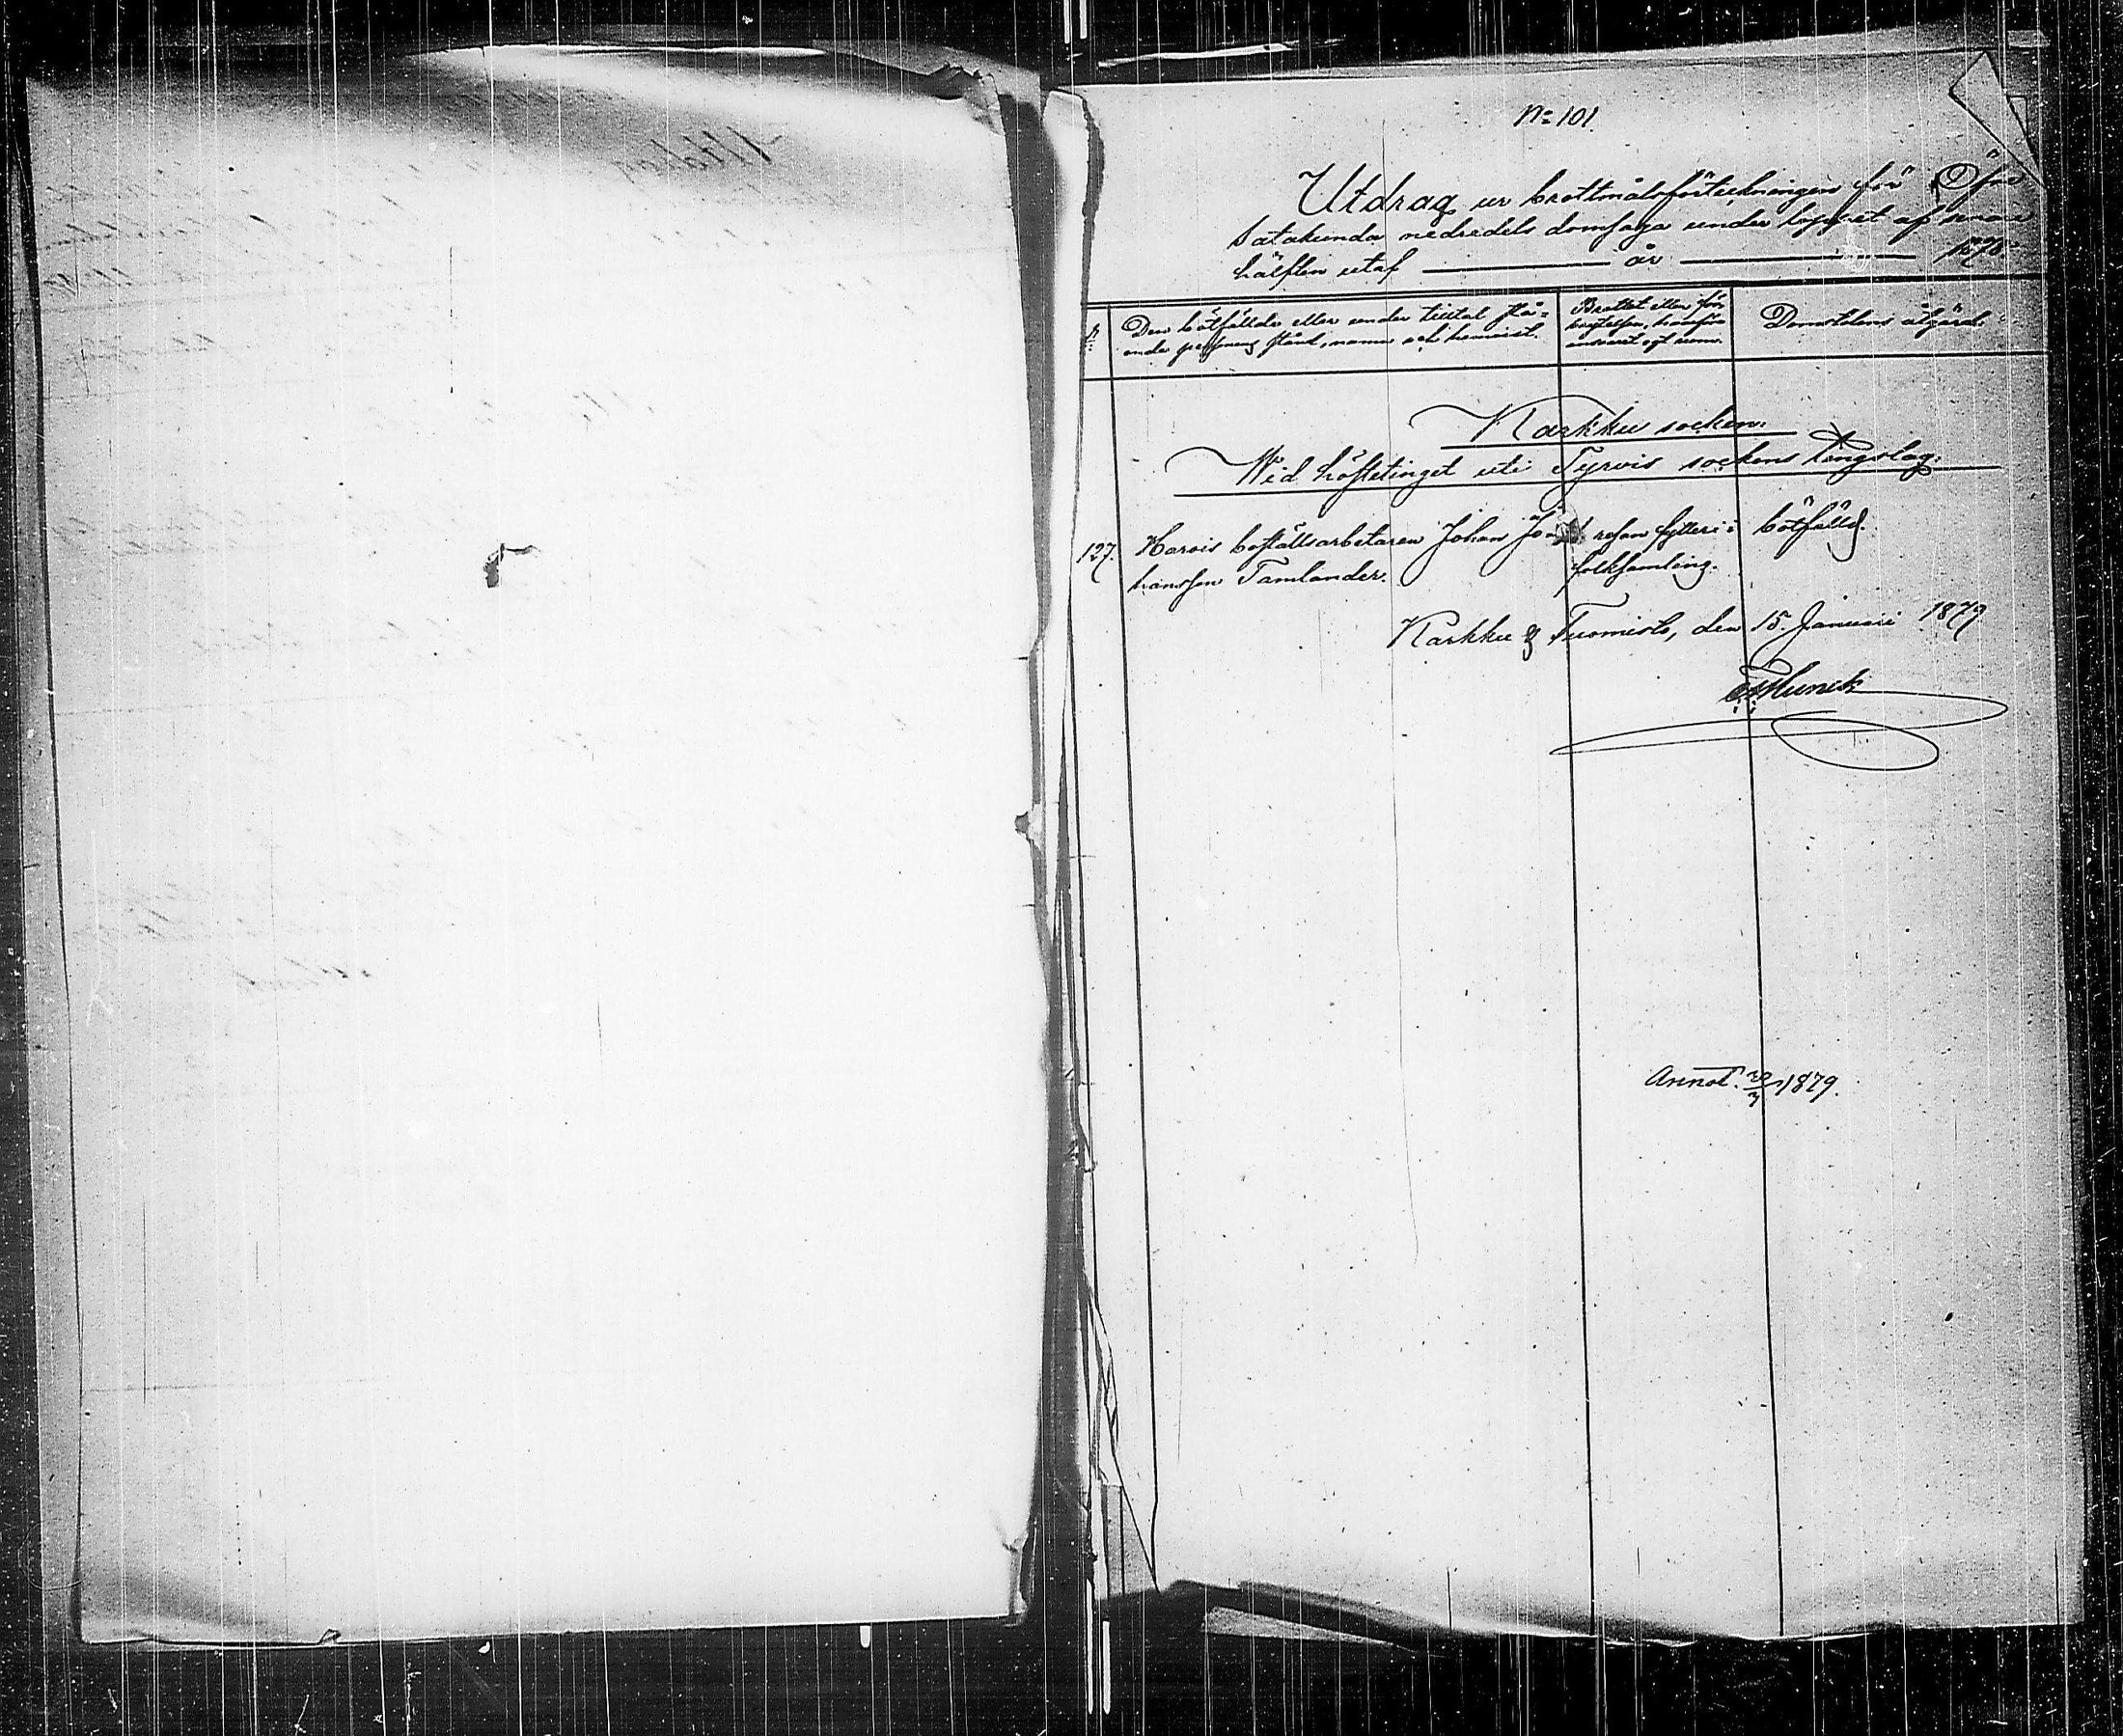 No 101.
Utdrag ur brottmålsförteckningen för Öfre
Satakunda nedredels domsaga under loppet af senare
hälften utaf — år — 1878
Den bötfällde eller under tilltal stå=
ende persons stånd, namn och hemvist.
Brottet eller för-
brytelsen, hvarföre
ansvaret egt rum.
Domstolens åtgärd.
Karkku socken.
Wid höstetinget uti Tyrvis sockens tingslag.
127. Harois boställsarbetaren Johan Jo=
hansson Tamlander.
resan fylleri i
folksamling.
bötfälld.
Karkku & Tuomisto, den 15. Januari 1879
Munck
Annot. 1879.